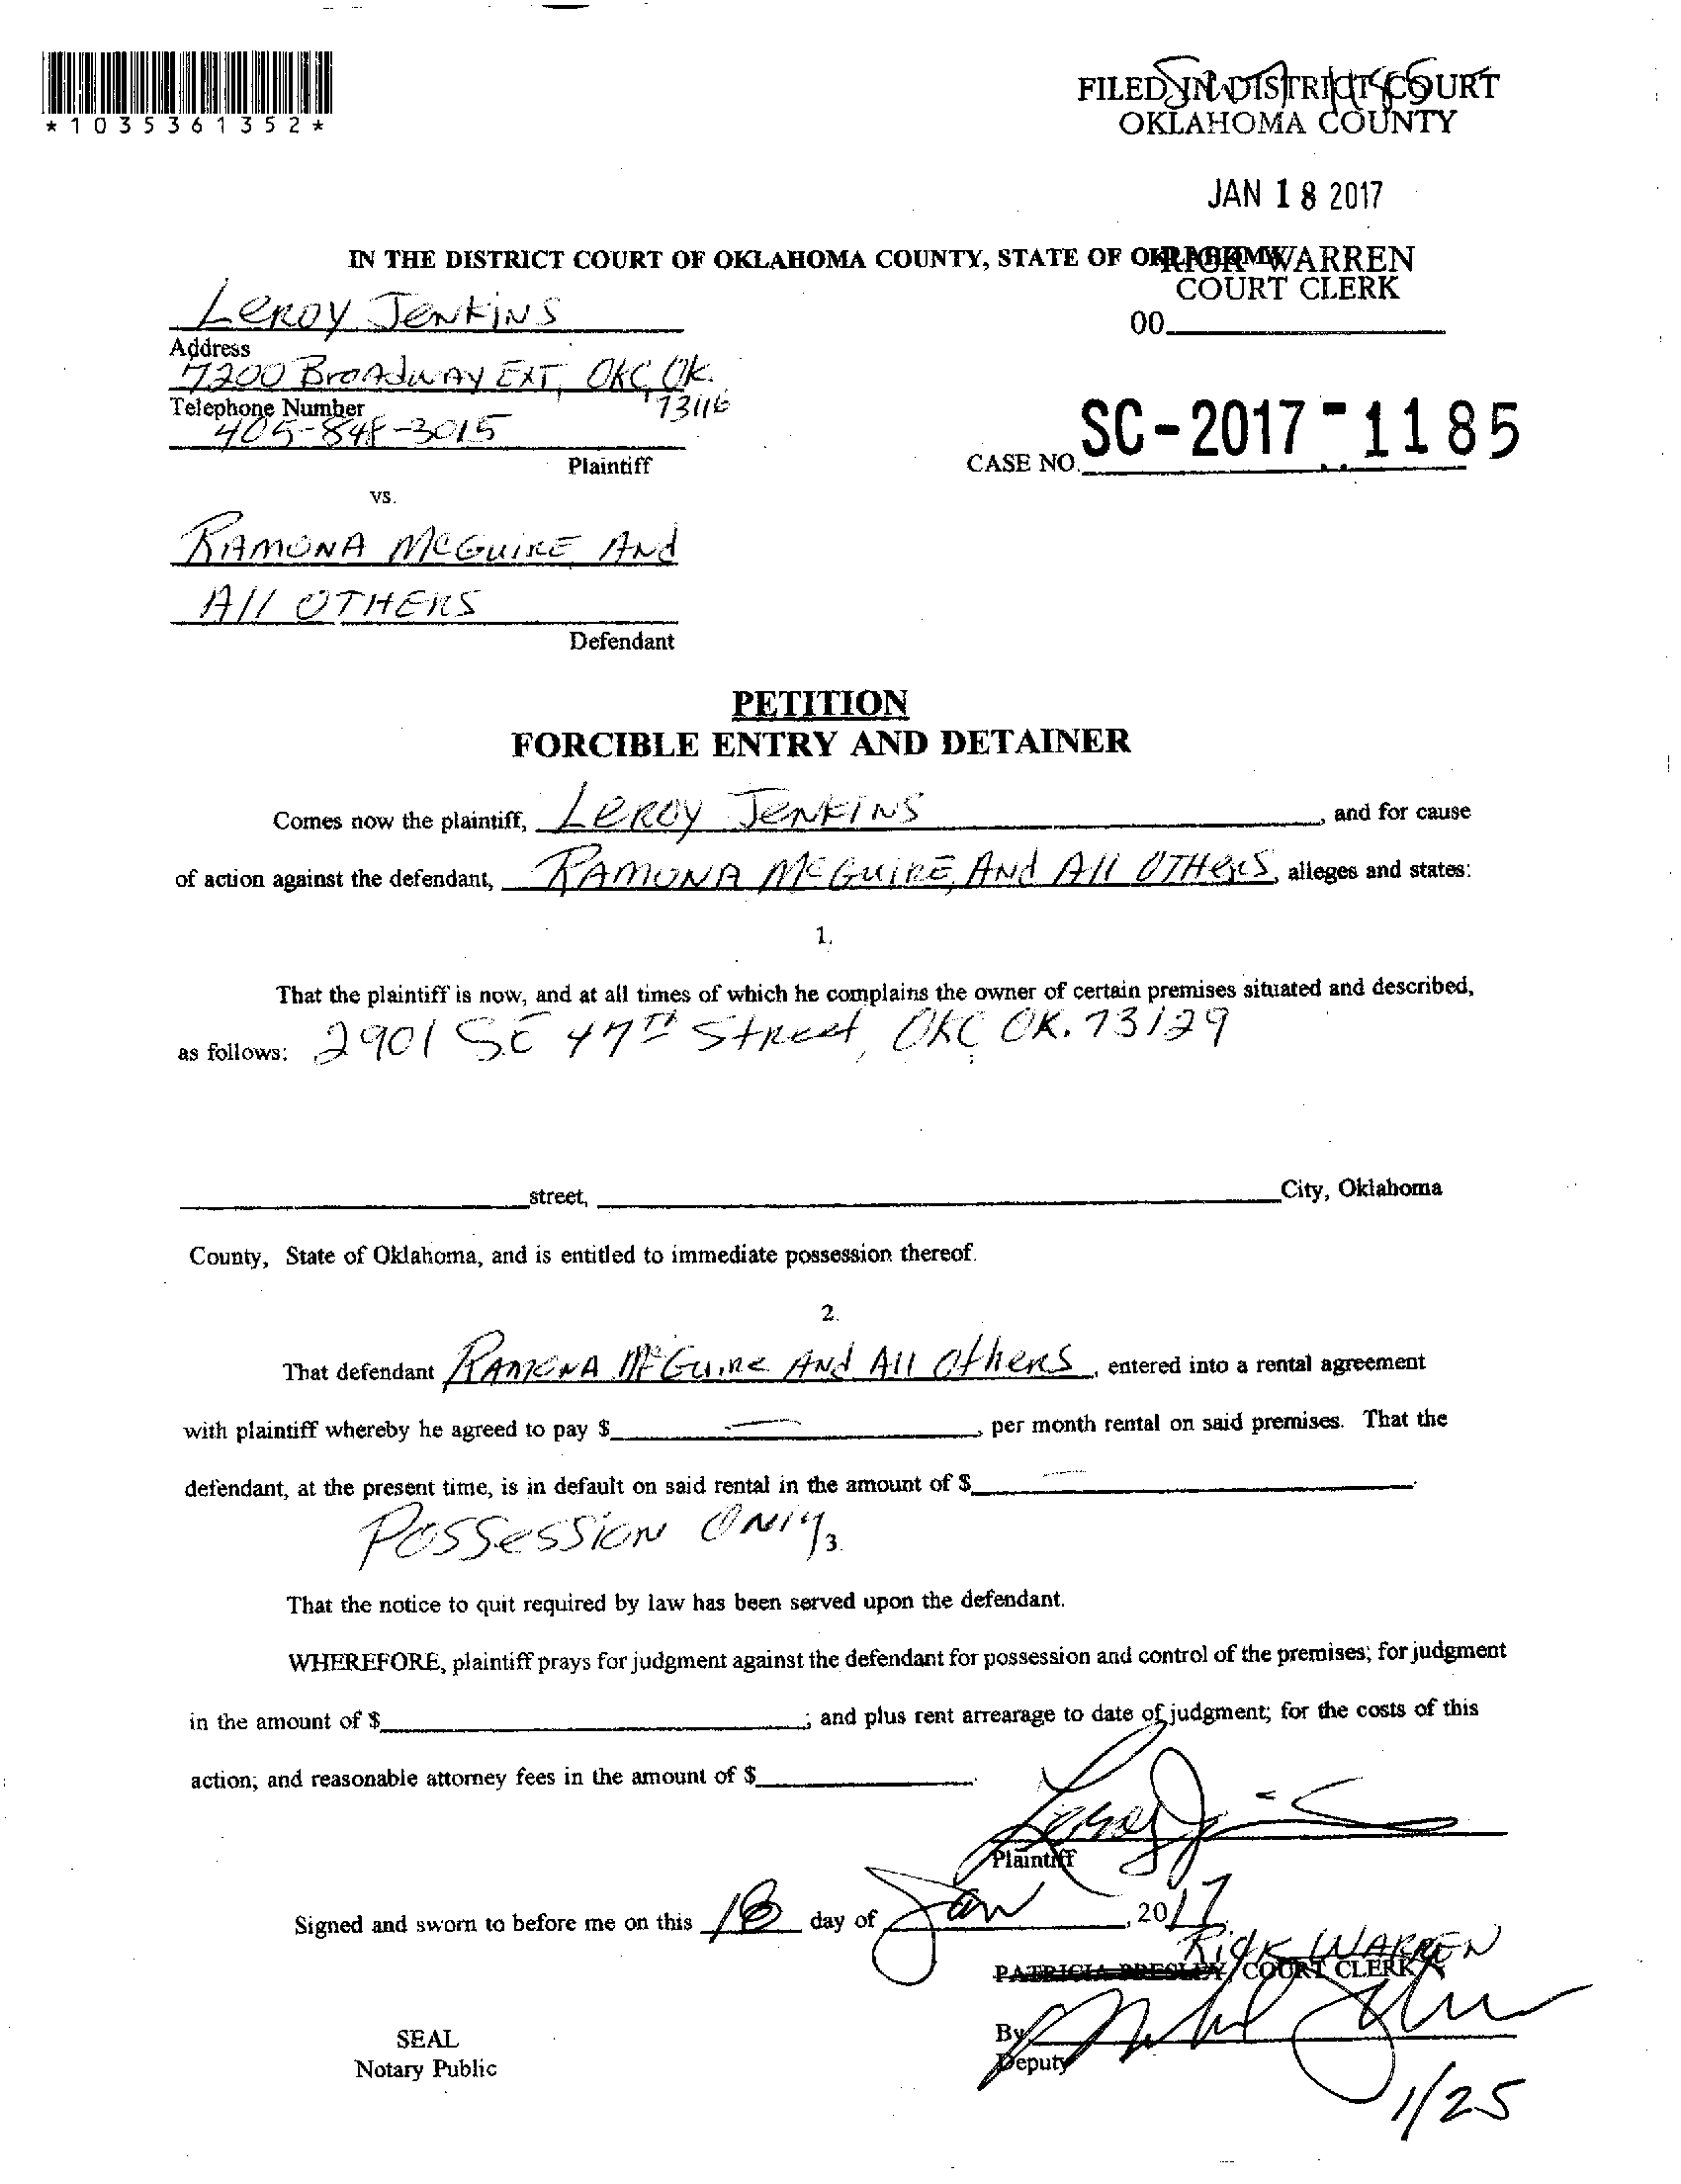 *1035361352*
FILED IN DISTRICT COURT
OKLAHOMA COUNTY
JAN 18 2017
IN THE DISTRICT COURT OF OKLAHOMA COUNTY, STATE OF OKLAHOMA
RICK WARREN
COURT CLERK
00
Leroy Jenkins
Address
7200 Broadway EXT, OKC, OK.
73116
Telephone Number
405-848-3015
Plaintiff
CASE NO. SC-2017-1185
vs.
RAMONA McGUIRE And
All OTHERS
Defendant
PETITION
FORCIBLE ENTRY AND DETAINER
Comes now the plaintiff, Leroy Jenkins, and for cause
of action against the defendant, RAMONA McGUIRE, And All OTHERS, alleges and states:
1.
That the plaintiff is now, and at all times of which he complains the owner of certain premises situated and described,
as follows: 2901 SE 47TH Street, OKC OK. 73129
street, City, Oklahoma
County, State of Oklahoma, and is entitled to immediate possession thereof.
2.
That defendant RAMONA McGuire And All Others, entered into a rental agreement
with plaintiff whereby he agreed to pay $ —, per month rental on said premises. That the
defendant, at the present time, is in default on said rental in the amount of $ —.
Possession Only
3.
That the notice to quit required by law has been served upon the defendant.
WHEREFORE, plaintiff prays for judgment against the defendant for possession and control of the premises; for judgment
in the amount of $; and plus rent arrearage to date of judgment; for the costs of this
action; and reasonable attorney fees in the amount of $.
Leroy Jenkins
Plaintiff
Signed and sworn to before me on this 18 day of Jan, 2017.
RICK WARREN
PATRICIA PRESLEY, COURT CLERK
By
Deputy
SEAL
Notary Public
1/25